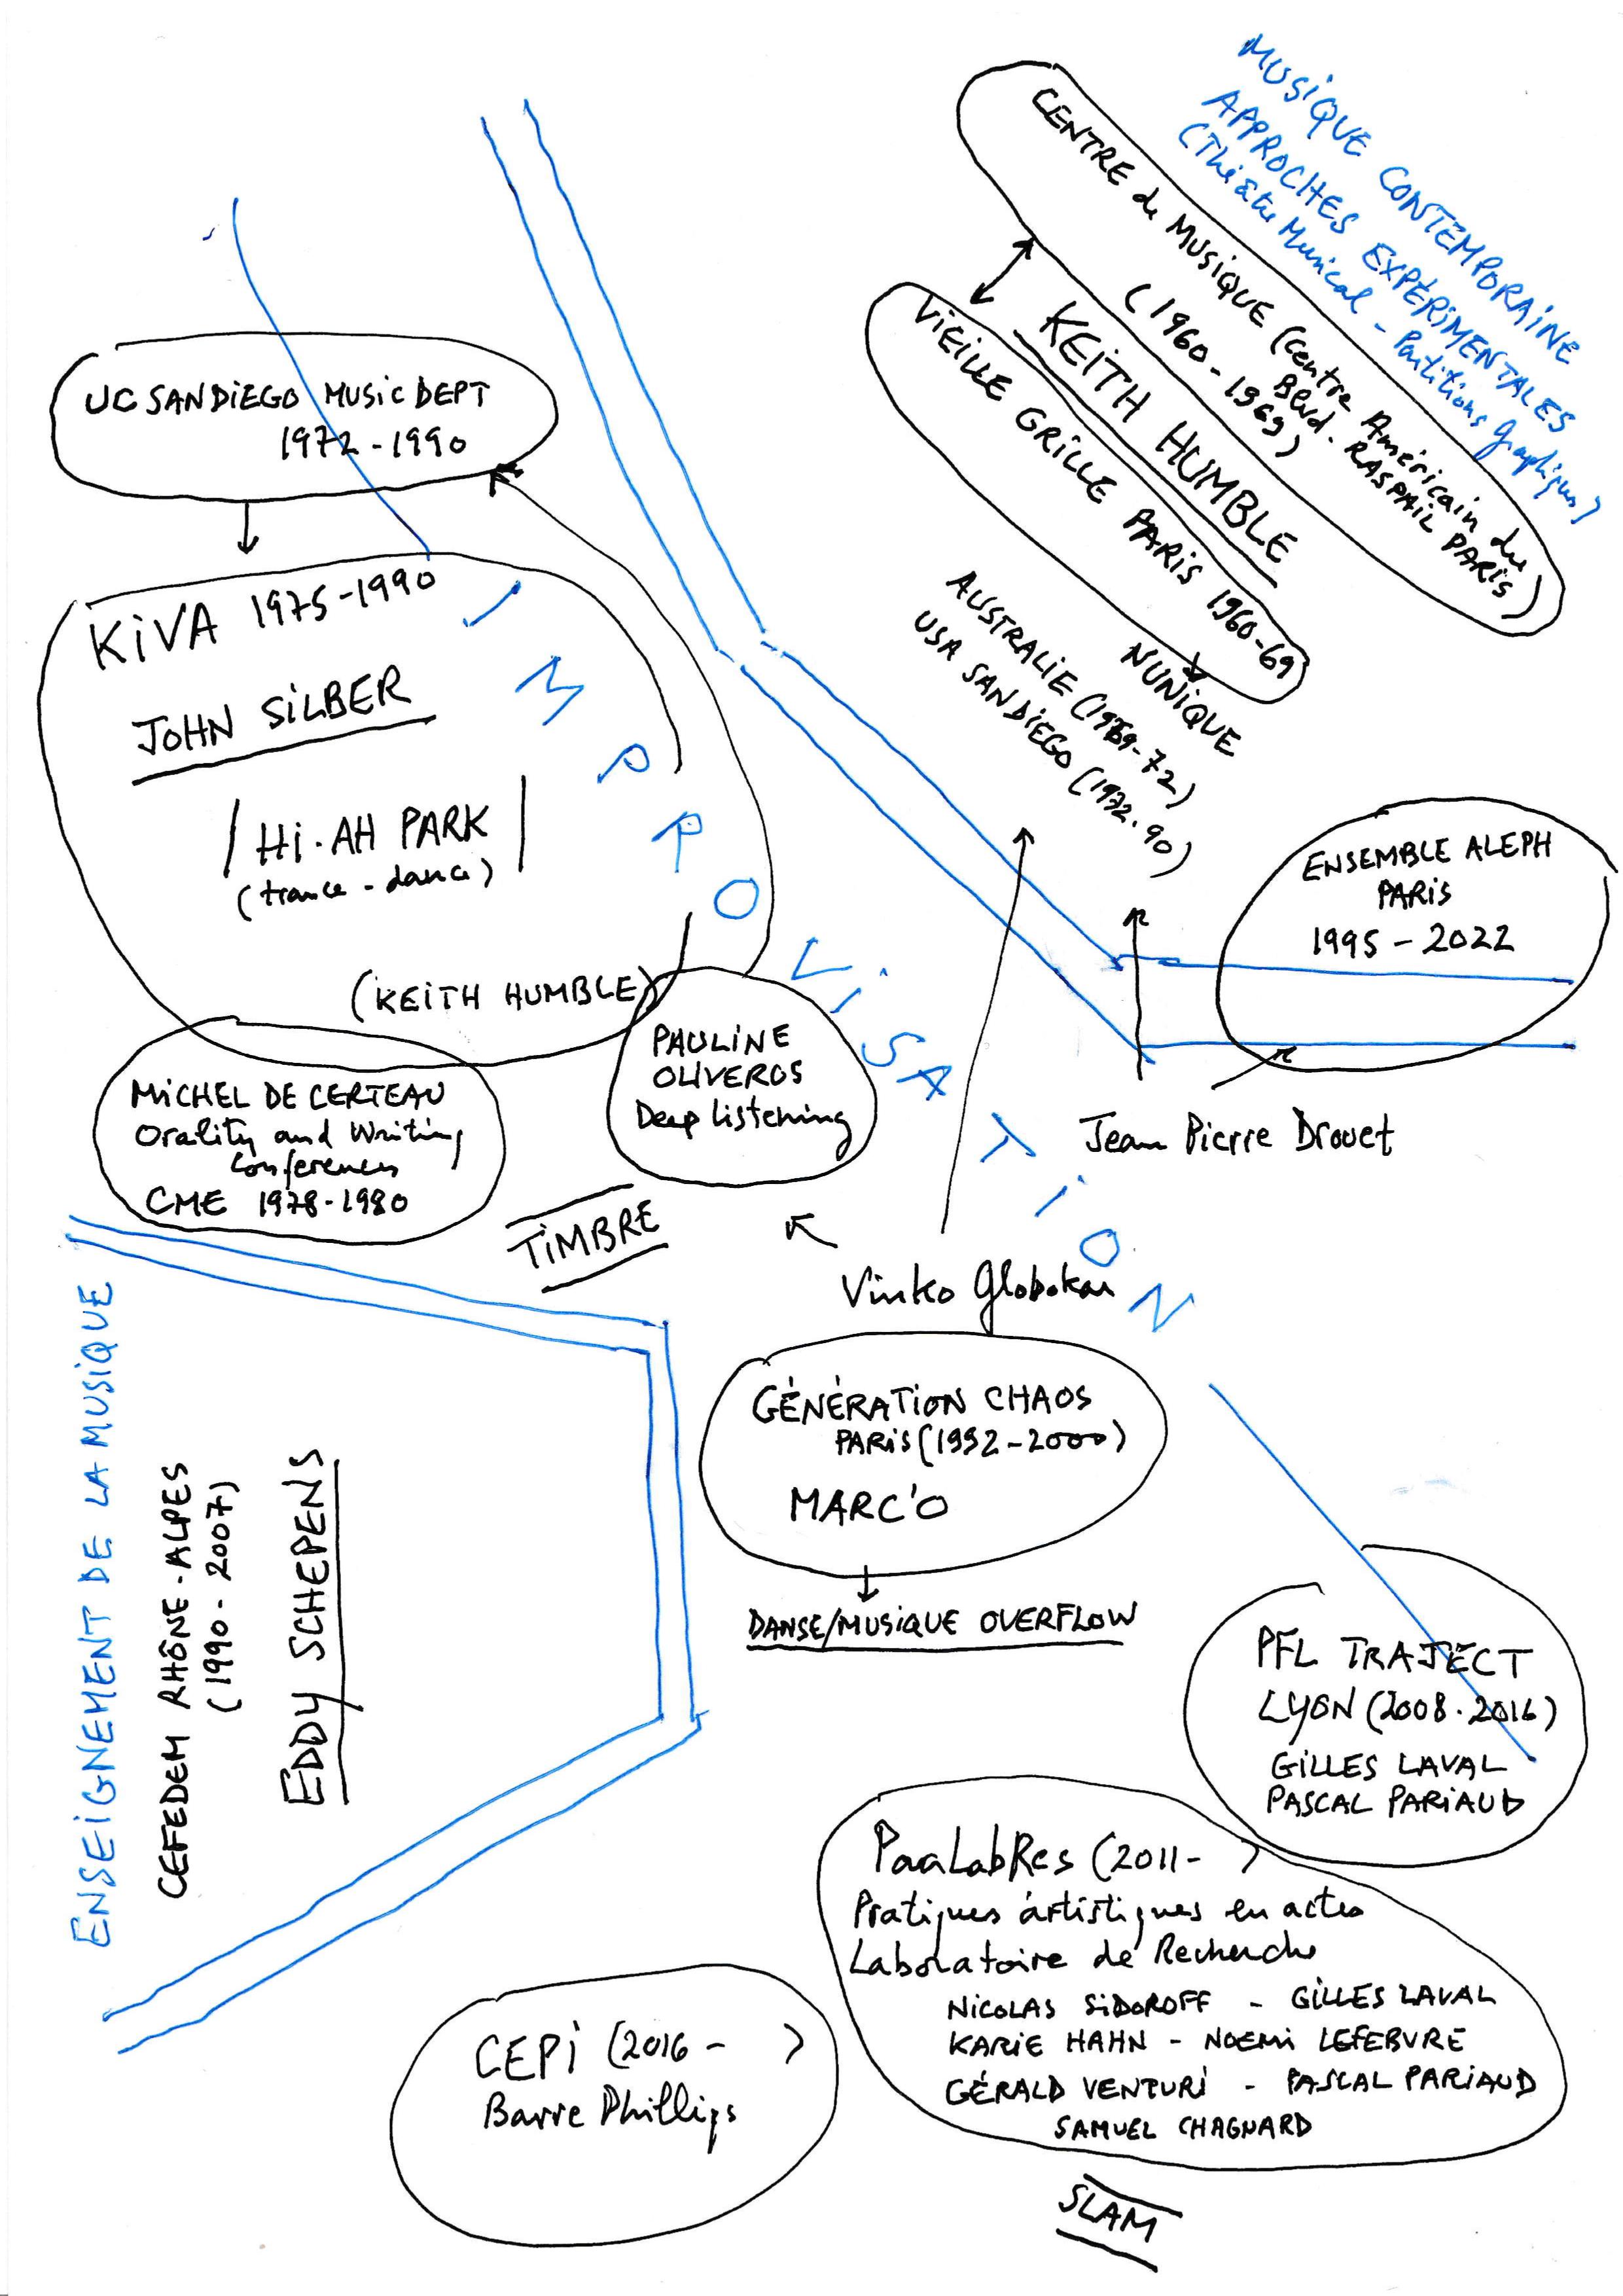 MUSIQUE CONTEMPORAINE
APPROCHES EXPÉRIMENTALES
(Théâtre Musical - Partitions graphiques)
CENTRE de MUSIQUE (Centre Américain du
Blvd. RASPAIL PARIS)
(1960-1969)
KEITH HUMBLE
VIEILLE GRILLE PARIS 1960-69
NUNIQUE
AUSTRALIE (1969-72)
USA SAN DIEGO (1972-90)
UC SAN DIEGO MUSIC DEPT
1972-1990
KIVA 1975-1990
JOHN SILBER
/ Hi-AH PARK /
(trance-dance)
(KEITH HUMBLE)
IMPROVISATION
ENSEMBLE ALEPH
PARIS
1995-2022
MICHEL DE CERTEAU
Orality and Writing
Conferences
CME 1978-1980
PAULINE
OLIVEROS
Deep listening
Jean Pierre Drouet
TIMBRE
Vinko Globokar
GÉNÉRATION CHAOS
PARIS (1992-2000)
MARC'O
DANSE/MUSIQUE OVERFLOW
ENSEIGNEMENT DE LA MUSIQUE
CEFEDEM RHÔNE-ALPES
(1990-2007)
EDDY SCHEPENS
PFL TRAJECT
LYON (2008-2016)
GILLES LAVAL
PASCAL PARIAUD
PaaLabRes (2011- )
Pratiques artistiques en actes
Laboratoire de Recherche
NICOLAS SIDOROFF - GILLES LAVAL
KARIE HAHN - NOEMI LEFEBVRE
GÉRALD VENTURI - PASCAL PARIAUD
SAMUEL CHAGNARD
CEPI (2016- )
Barre Phillips
SLAM